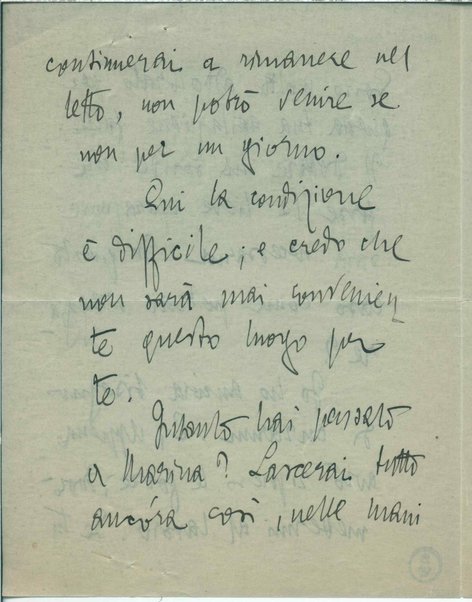 continuerai a rimanere nel
letto, non potrò venire se
non per un giorno.
Qui la condizione
è difficile; e credo che
non sarà mai convenien
te questo luogo per
te.
Intanto hai pensato
a Marina? Lascerai tutto
ancóra così, nelle mani